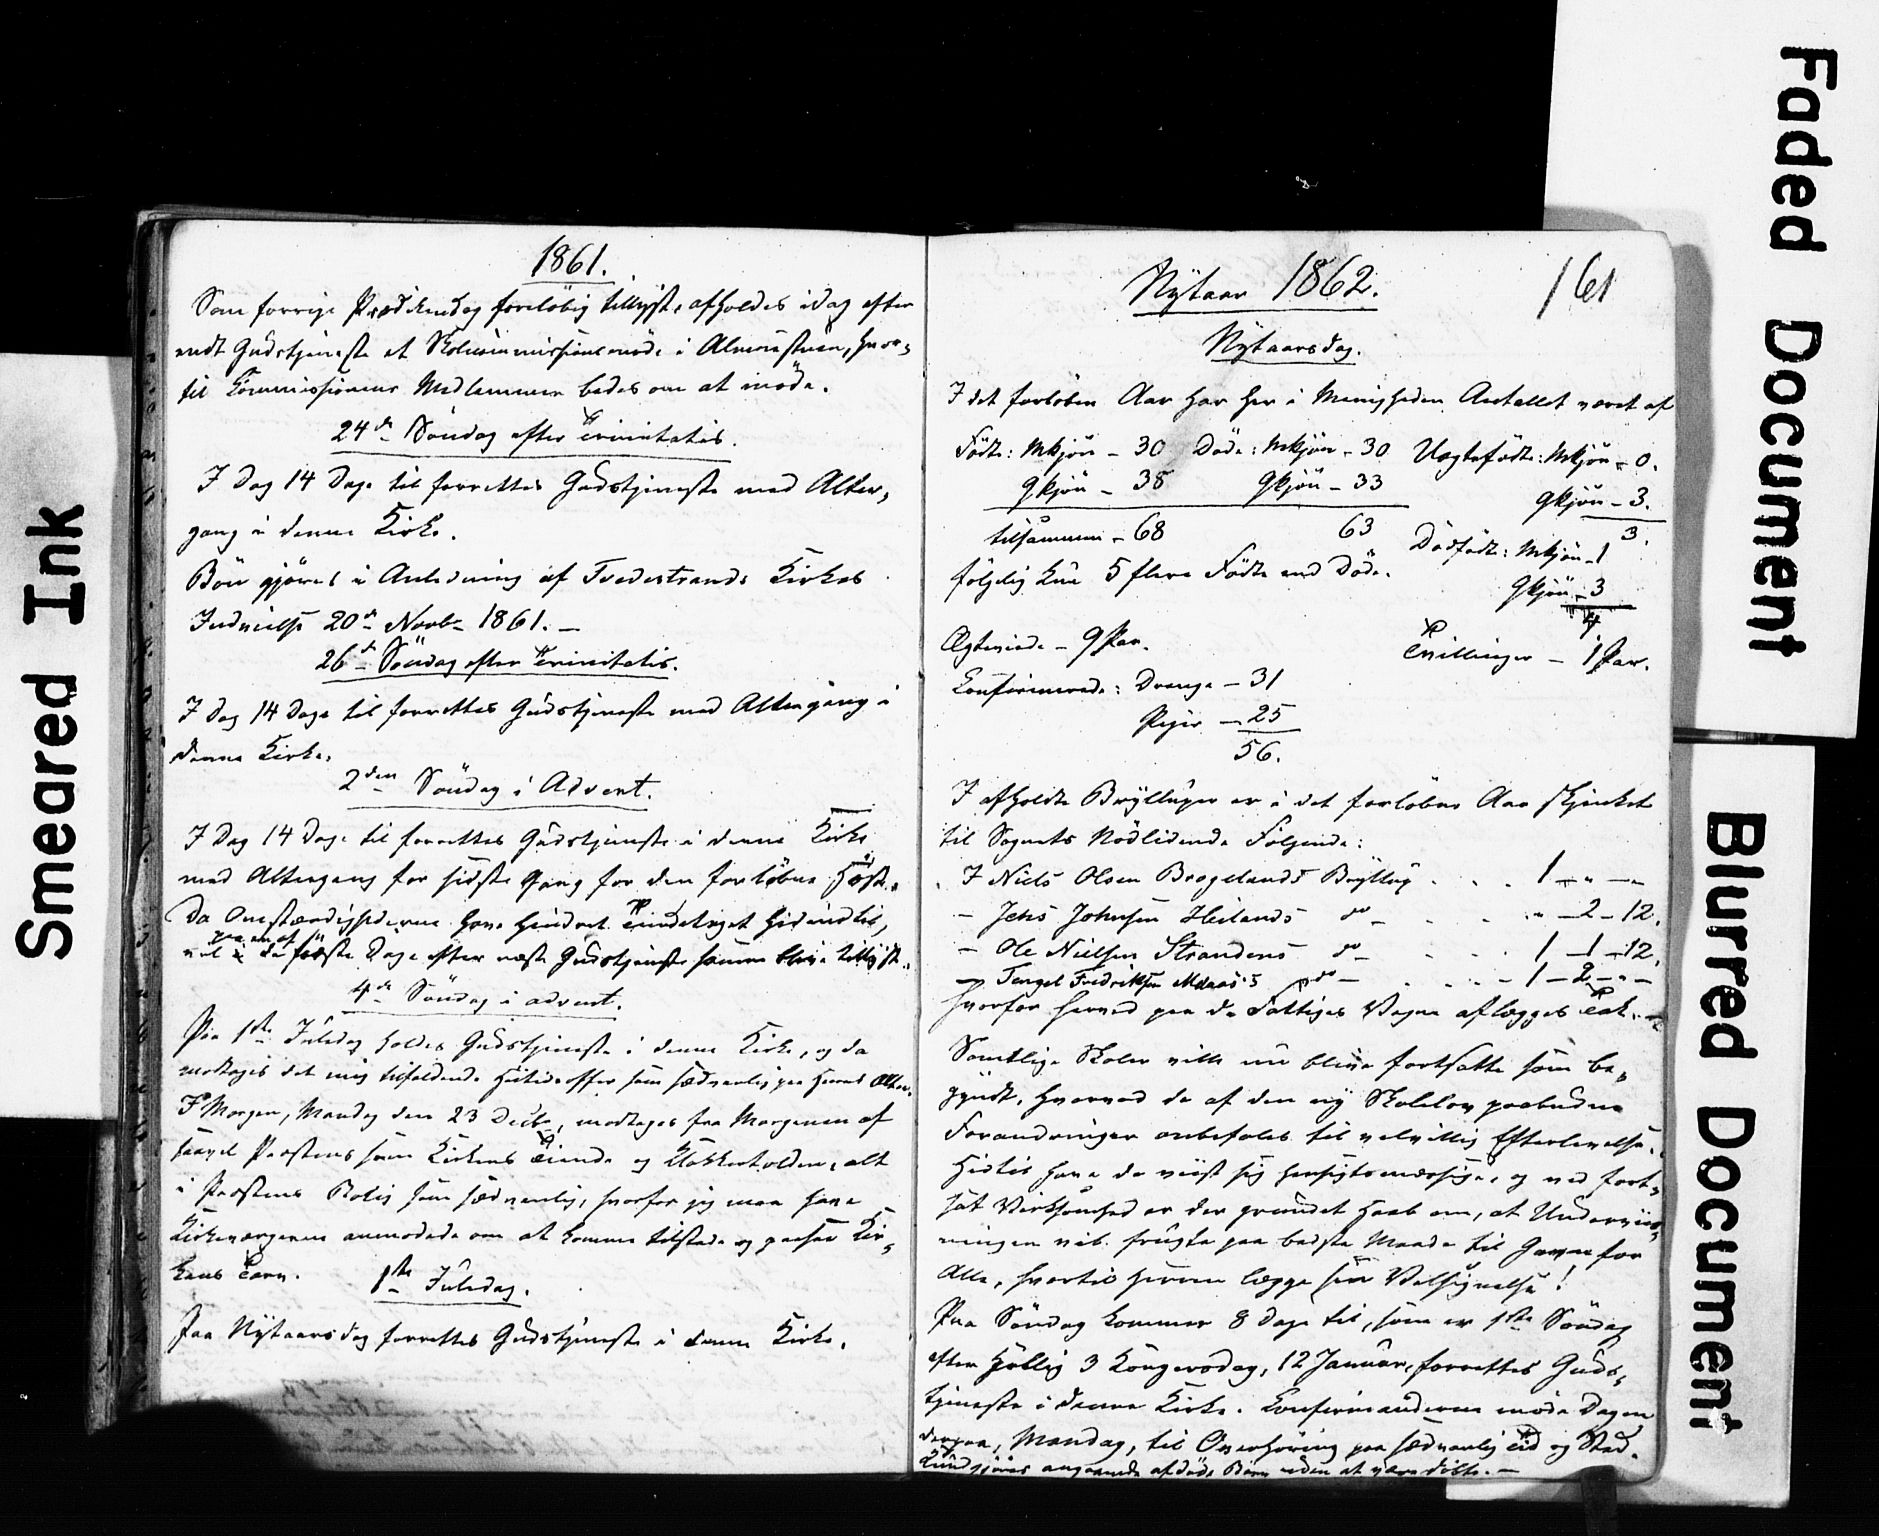 1861.
Som forrige Prædikendag foreløbig tillyst, afholdes idag efter
endt Gudstjeneste et Skolecommissionsmøde i Almuestuen, hvor-
til Commissionens Medlemmer bedes om at møde.
24de Søndag efter Trinitatis.
I Dag 14 Dage til forrettes Gudstjeneste med Alter-
gang i denne Kirke.
Bøn gjøres i Anledning af Tvedestrands Kirkes
Indvielse 20de Novbr 1861. —
26de Søndag efter Trinitatis.
I Dag 14 Dage til forrettes Gudstjeneste med Altergang i
denne Kirke.
2den Søndag i Advent.
I Dag 14 Dage til forrettes Gudstjeneste i denne Kirke
med Altergang for sidste Gang for den forløbne Høst.
Da Omstændighederne have hindret Tiendetaget hidindtil,
vil en af de første Dage efter næste Gudstjeneste samme blive tillyst.
4de Søndag i advent.
Paa 1ste Juledag holdes Gudstjeneste i denne Kirke, og da
modtages det mig tilfaldende Høitidsoffer som sædvanlig paa Herrens Alter.
I Morgen, Mandag den 23 Decbr, modtages fra Morgenen af
saavel Præstens som Kirkens Tiende og Klokkertolden, alt
i Præstens Bolig som sædvanlig, hvorfor jeg maa have
Kirkeværgerne anmodede om at komme tilstede og passe Kir-
kens Tarv.
1ste Juledag.
Paa Nytaarsdag forrettes Gudstjeneste i denne Kirke.
Nytaar 1862.
161
Nytaarsdag.
I det forløbne Aar har her i Menigheden Antallet været af
Fødte: Mkjøn - 30 Døde: Mkjøn - 30 Uægtefødte: Mkjøn - 0.
Qkjøn - 38 Qkjøn - 33 Qkjøn - 3.
tilsammen - 68 63 3.
Dødfødte: Mkjøn - 1
følgelig kun 5 flere Fødte end Døde.
Qkjøn - 3
4
Ægteviede - 9 Par. Tvillinger - 1 Par.
Confirmerede: Drenge - 31
Piger - 25
56.
I afholdte Bryllupper er i det forløbne Aar skjenket
til Sognets Nødlidende Følgende:
I Niels Olsen Brogelands Bryllup . . . 1 - " - "
- Jens Johnsen Heilands do - . . . " - 2 - 12.
- Ole Nielsen Strandens do - . . . 1 - 1 - 12.
- Tergel Fredriksen Maas's do - . . . 1 - 2 - " -
hvorfor herved paa de Fattiges Vegne aflægges Tak. -
Samtlige Skoler ville nu blive fortsatte som be-
gyndt, hvorved de af den ny Skolelov paabudne
Forandringer anbefales til velvillig Efterlevelse.
Hidtil have de viist sig hensigtsmæssige, og ved fort-
sat Virksomhed er der grundet Haab om, at Underviis-
ningen vil frugte paa bedste Maade til Gavn for
Alle, hvortil Herren lægge sin Velsignelse!
Paa Søndag kommer 8 Dage til, som er 1ste Søndag
efter Hellig 3 Kongersdag, 12 Januar, forrettes Guds-
tjeneste i denne Kirke. Confirmanderne møde Dagen
derpaa, Mandag, til Overhøring paa sædvanlig Tid og Sted.
Kundgjøres angaaende afdøde Børn uden at være døbte. —
Smeared Ink
Faded Document
Blurred Document